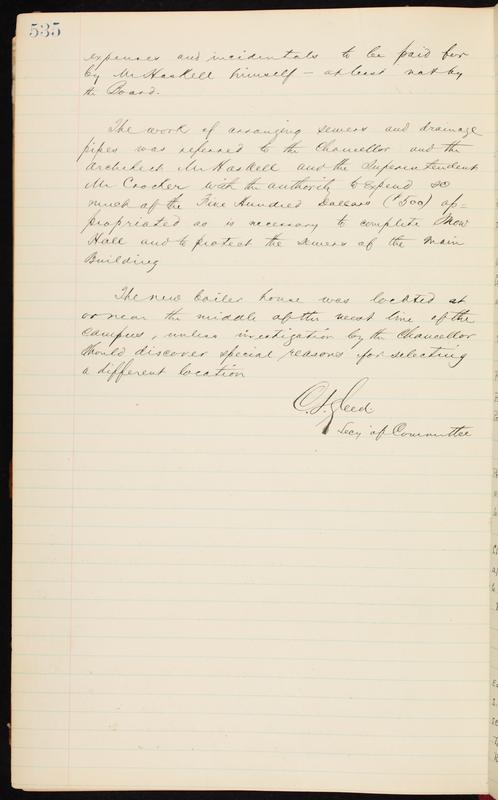 535
expenses and incidentals to be paid for
by Mr Haskell himself – at least not by
the Board.
The work of arranging sewers and drainage
pipes was referred to the Chancellor and the
architect Mr Haskell and the Superintendent
Mr Crocker with the authority to expend so
much of the Five Hundred Dollars ($500) ap-
propriated as is necessary to complete Snow
Hall and to protect the Sewers of the Main
Building
The new boiler house was located at
or near the middle of the west line of the
campus, unless investigation by the Chancellor
should discover special reasons for selecting
a different location
C. S. Gleed
Secy of Committee